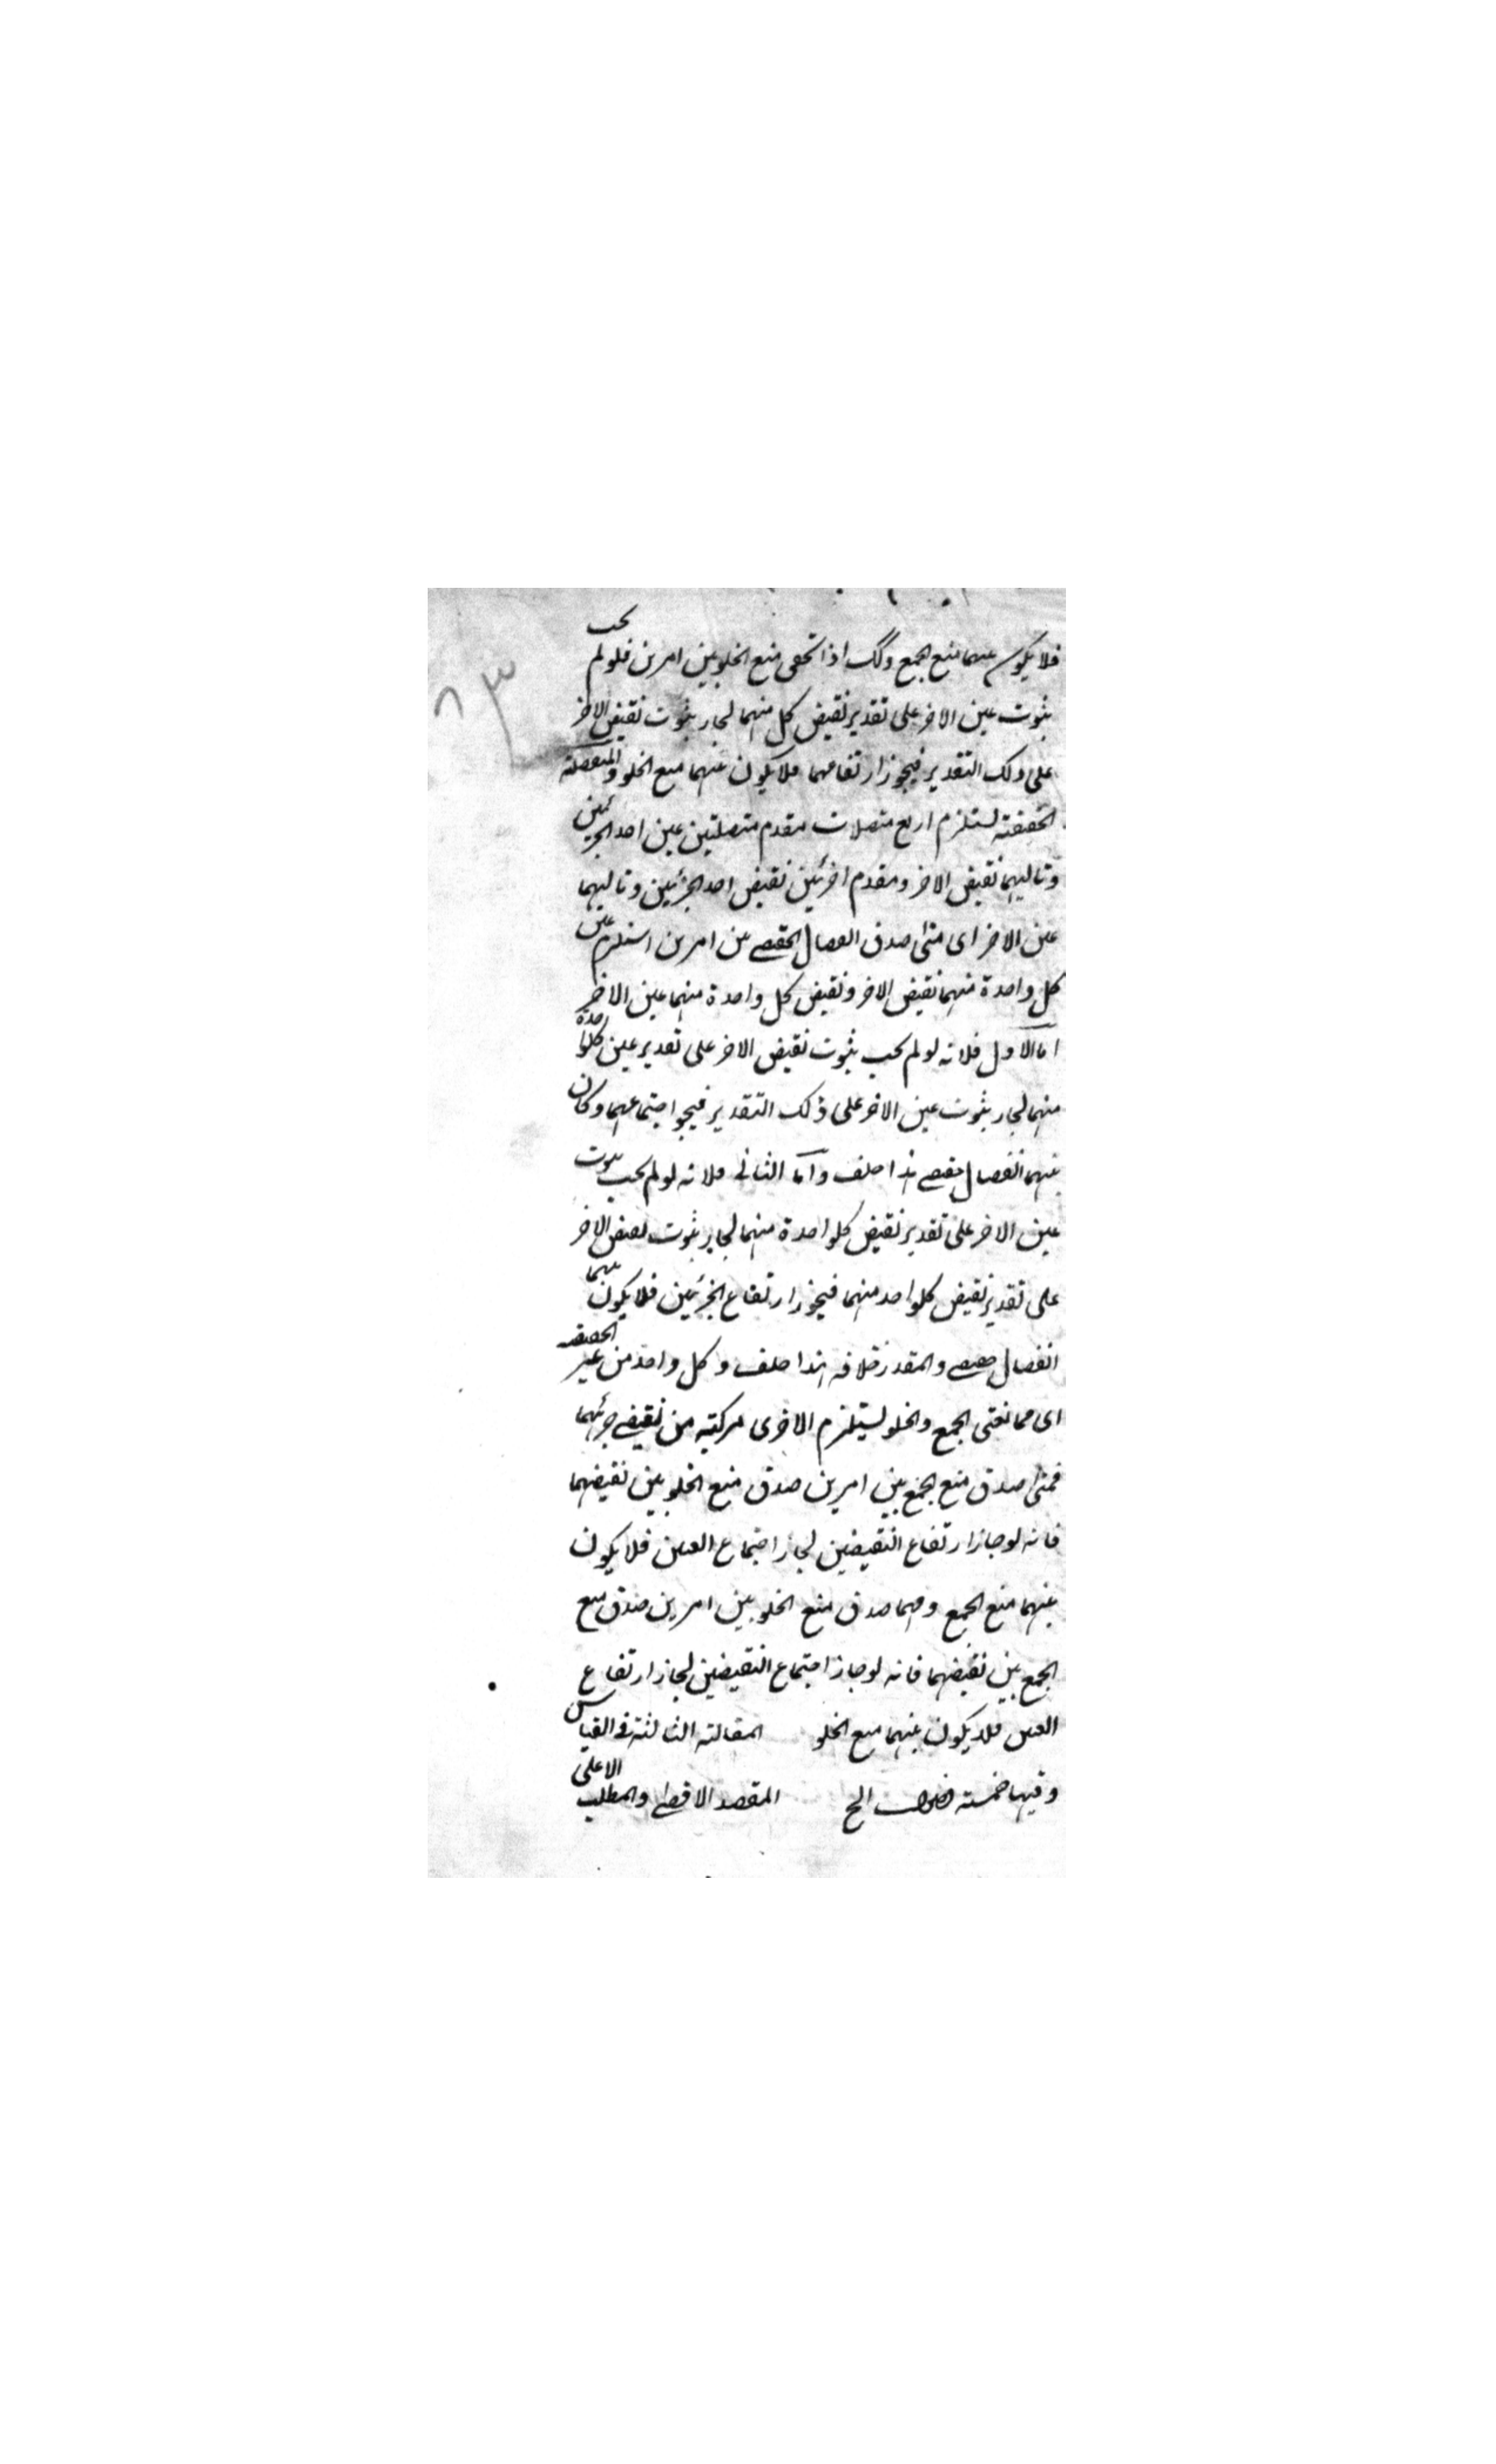 فلا يكون بينهما منع الجمع وكك اذا تحقق منع الخلو بين امرين فلو لم يجب
ثبوت عين الاخر على تقدير نقيض كل منهما لجاز ثبوت نقيض الاخر
على ذلك التقدير فيجوز ارتفاعهما فلا يكون بينهما منع الخلو والمنفصلة
الحقيقية تستلزم اربع متصلات مقدم متصلتين عين احد الجزئين
وتاليهما نقيض الاخر ومقدم اخريين نقيض احد الجزئين وتاليهما
عين الاخر اى متى صدق انفصال حقيقي بين امرين استلزم عين
كل واحدة منهما نقيض الاخر ونقيض كل واحدة منهما عين الاخر
اما الاول فلانه لو لم يجب ثبوت نقيض الاخر على تقدير عين كلواحدة
منهما لجاز ثبوت عين الاخر على ذلك التقدير فيجوا اجتماعهما وكان
بينهما انفصال حقيقي هذا خلف واما الثاني فلانه لو لم يجب ثبوت
عين الاخر على تقدير نقيض كلواحدة منهما لجاز ثبوت نقيض الاخر
على تقدير نقيض كلواحد منهما فيجوز ارتفاع الجزئين فلا يكون بينهما
انفصال حقيقي والمقدر خلافه هذا خلف وكل واحد من غير الحقيقية
اى مانعتى الجمع والخلو يستلزم الاخرى مركبة من نقيضي جزئيهما
فمتى صدق منع الجمع بين امرين صدق منع الخلو بين نقيضهما
فانه لو جاز ارتفاع النقيضين لجاز اجتماع العينين فلا يكون
بينهما منع الجمع ومهما صدق منع الخلو بين امرين صدق منع
الجمع بين نقيضهما فانه لو جاز اجتماع النقيضين لجاز ارتفاع
العينين فلا يكون بينهما منع الخلو المقالة الثالثة فى القياس
وفيها خمسة فصول الخ المقصد الاقصى والمطلب الاعلى